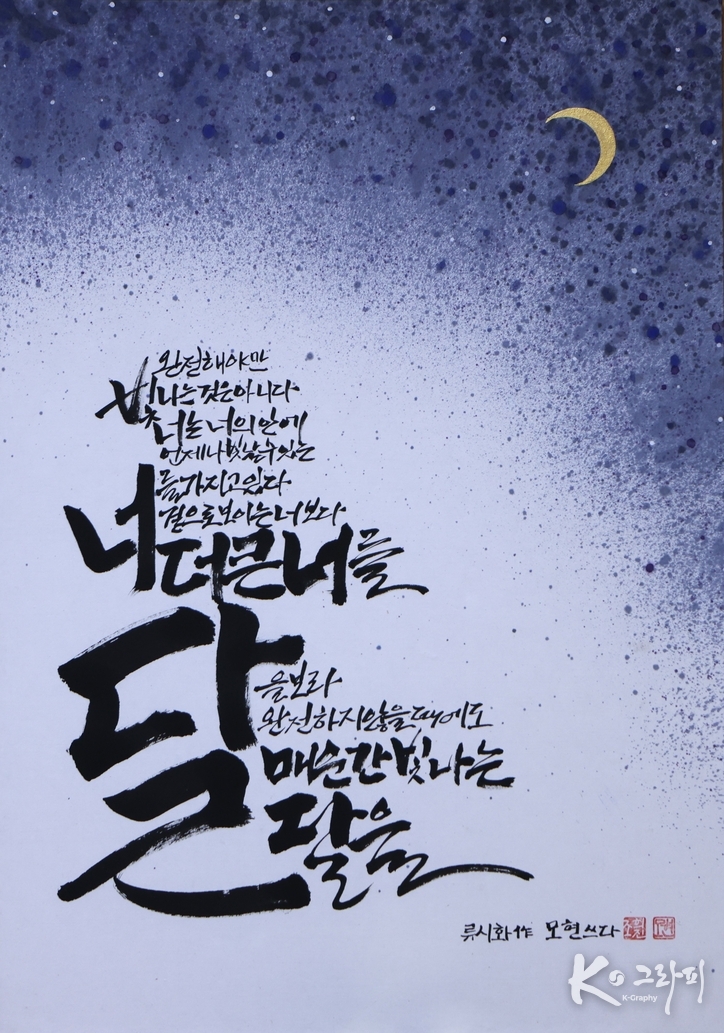 완전해야만
빛나는 것은 아니다
너는 너의 안에
언제나 빛날 수 있는
너를 가지고 있다
겉으로 보이는 너보다
더 큰 너를
달을 보라
완전하지 않을 때에도
매 순간 빛나는
달을
류시화 作 모현 쓰다
K그라피
K-Graphy